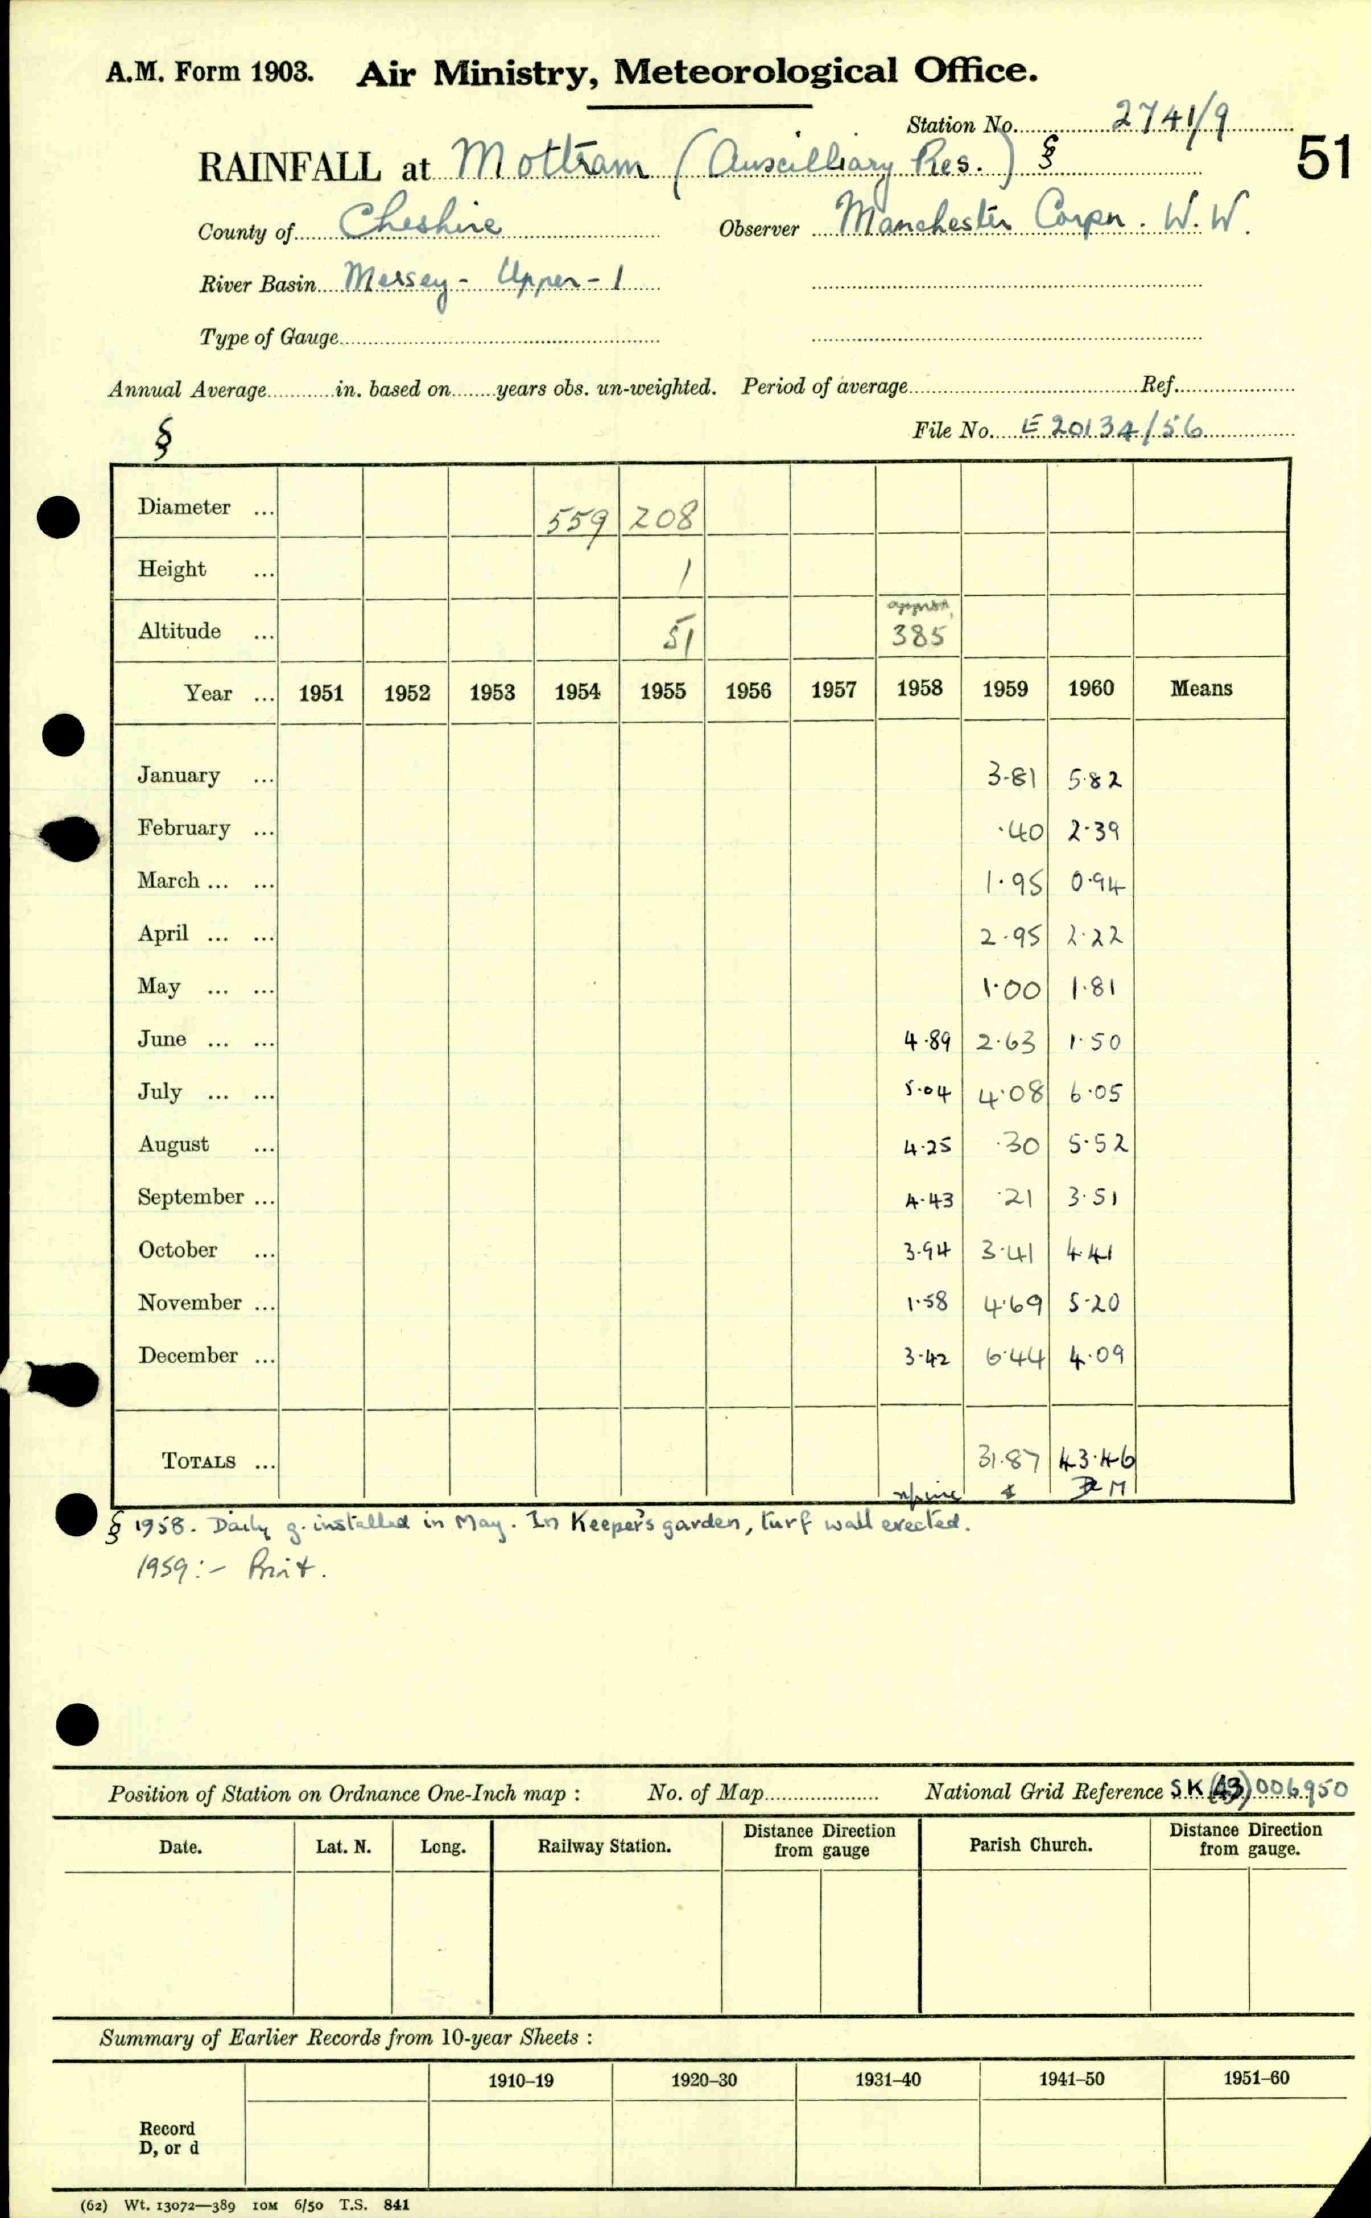 A.M. Form 1903. Air Ministry, Meteorological Office.
Station No. 2741/9
RAINFALL at Mottram (Auxcilliary Res.) §
51
County of Cheshire Observer Manchester Corpn. W.W.
River Basin Mersey - Upper - 1
Type of Gauge
Annual Average in. based on years obs. un-weighted. Period of average Ref.
§ File No. E 20134/56
Diameter ... 559 208
Height ... 1
approx.
Altitude ... 51 385
Year ... 1951 1952 1953 1954 1955 1956 1957 1958 1959 1960 Means
January ... 3.81 5.82
February ... .40 2.39
March ... ... 1.95 0.94
April ... ... 2.95 2.22
May ... ... 1.00 1.81
June ... ... 4.89 2.63 1.50
July ... ... 5.04 4.08 6.05
August ... 4.25 .30 5.52
September ... 4.43 .21 3.51
October ... 3.94 3.41 4.41
November ... 1.58 4.69 5.20
December ... 3.42 6.44 4.09
TOTALS ... 31.87 43.46
M
§ 1958. Daily g. installed in May. In Keeper's garden, turf wall erected.
1959:- Print.
Position of Station on Ordnance One-Inch map : No. of Map National Grid Reference SK (43) 006950
Date. Lat. N. Long. Railway Station. Distance from Direction gauge Parish Church. Distance from Direction gauge.
Summary of Earlier Records from 10-year Sheets :
1910–19 1920–30 1931–40 1941–50 1951–60
Record
D, or d
(62) Wt. 13072—389 10M 6/50 T.S. 841